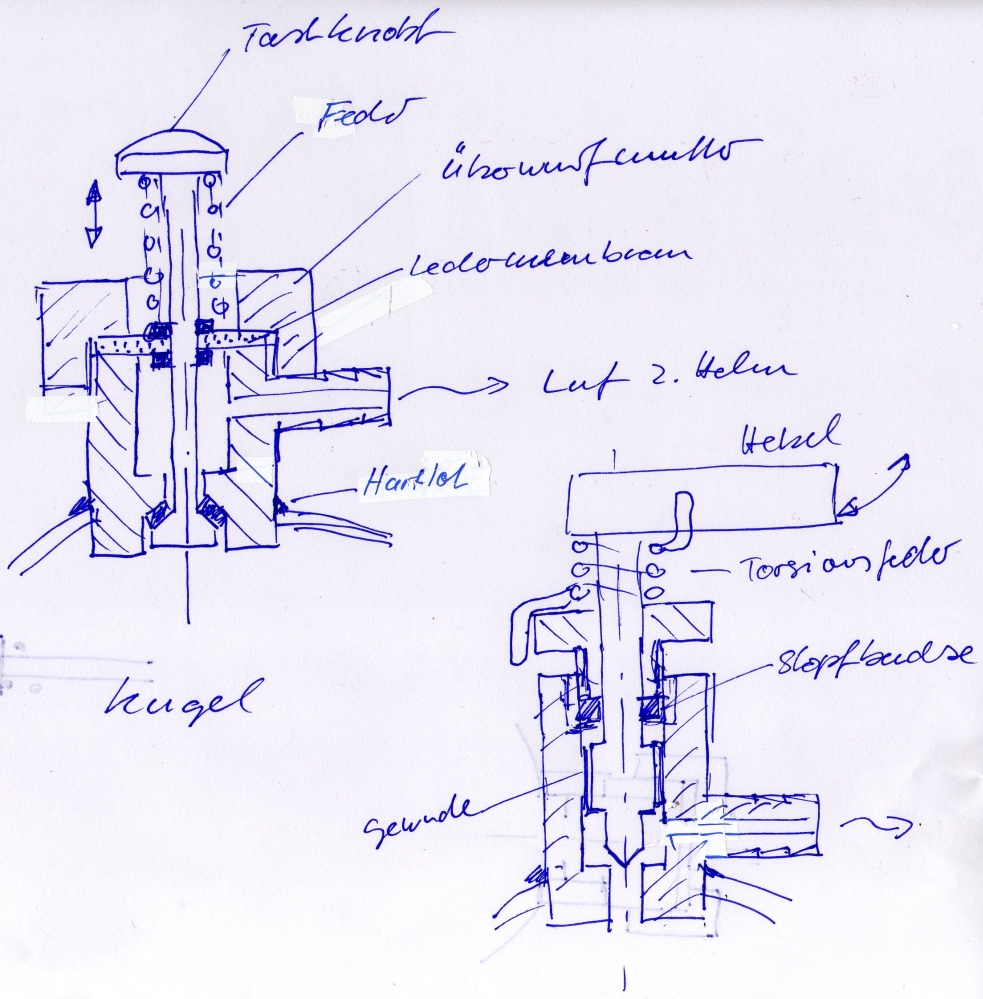 Tastknopf
Feder
Überwurfmutter
Ledermembran
Luf z. Helm
Hebel
Hartlot
Torsionsfeder
Stopfbuchse
Kugel
Gewinde